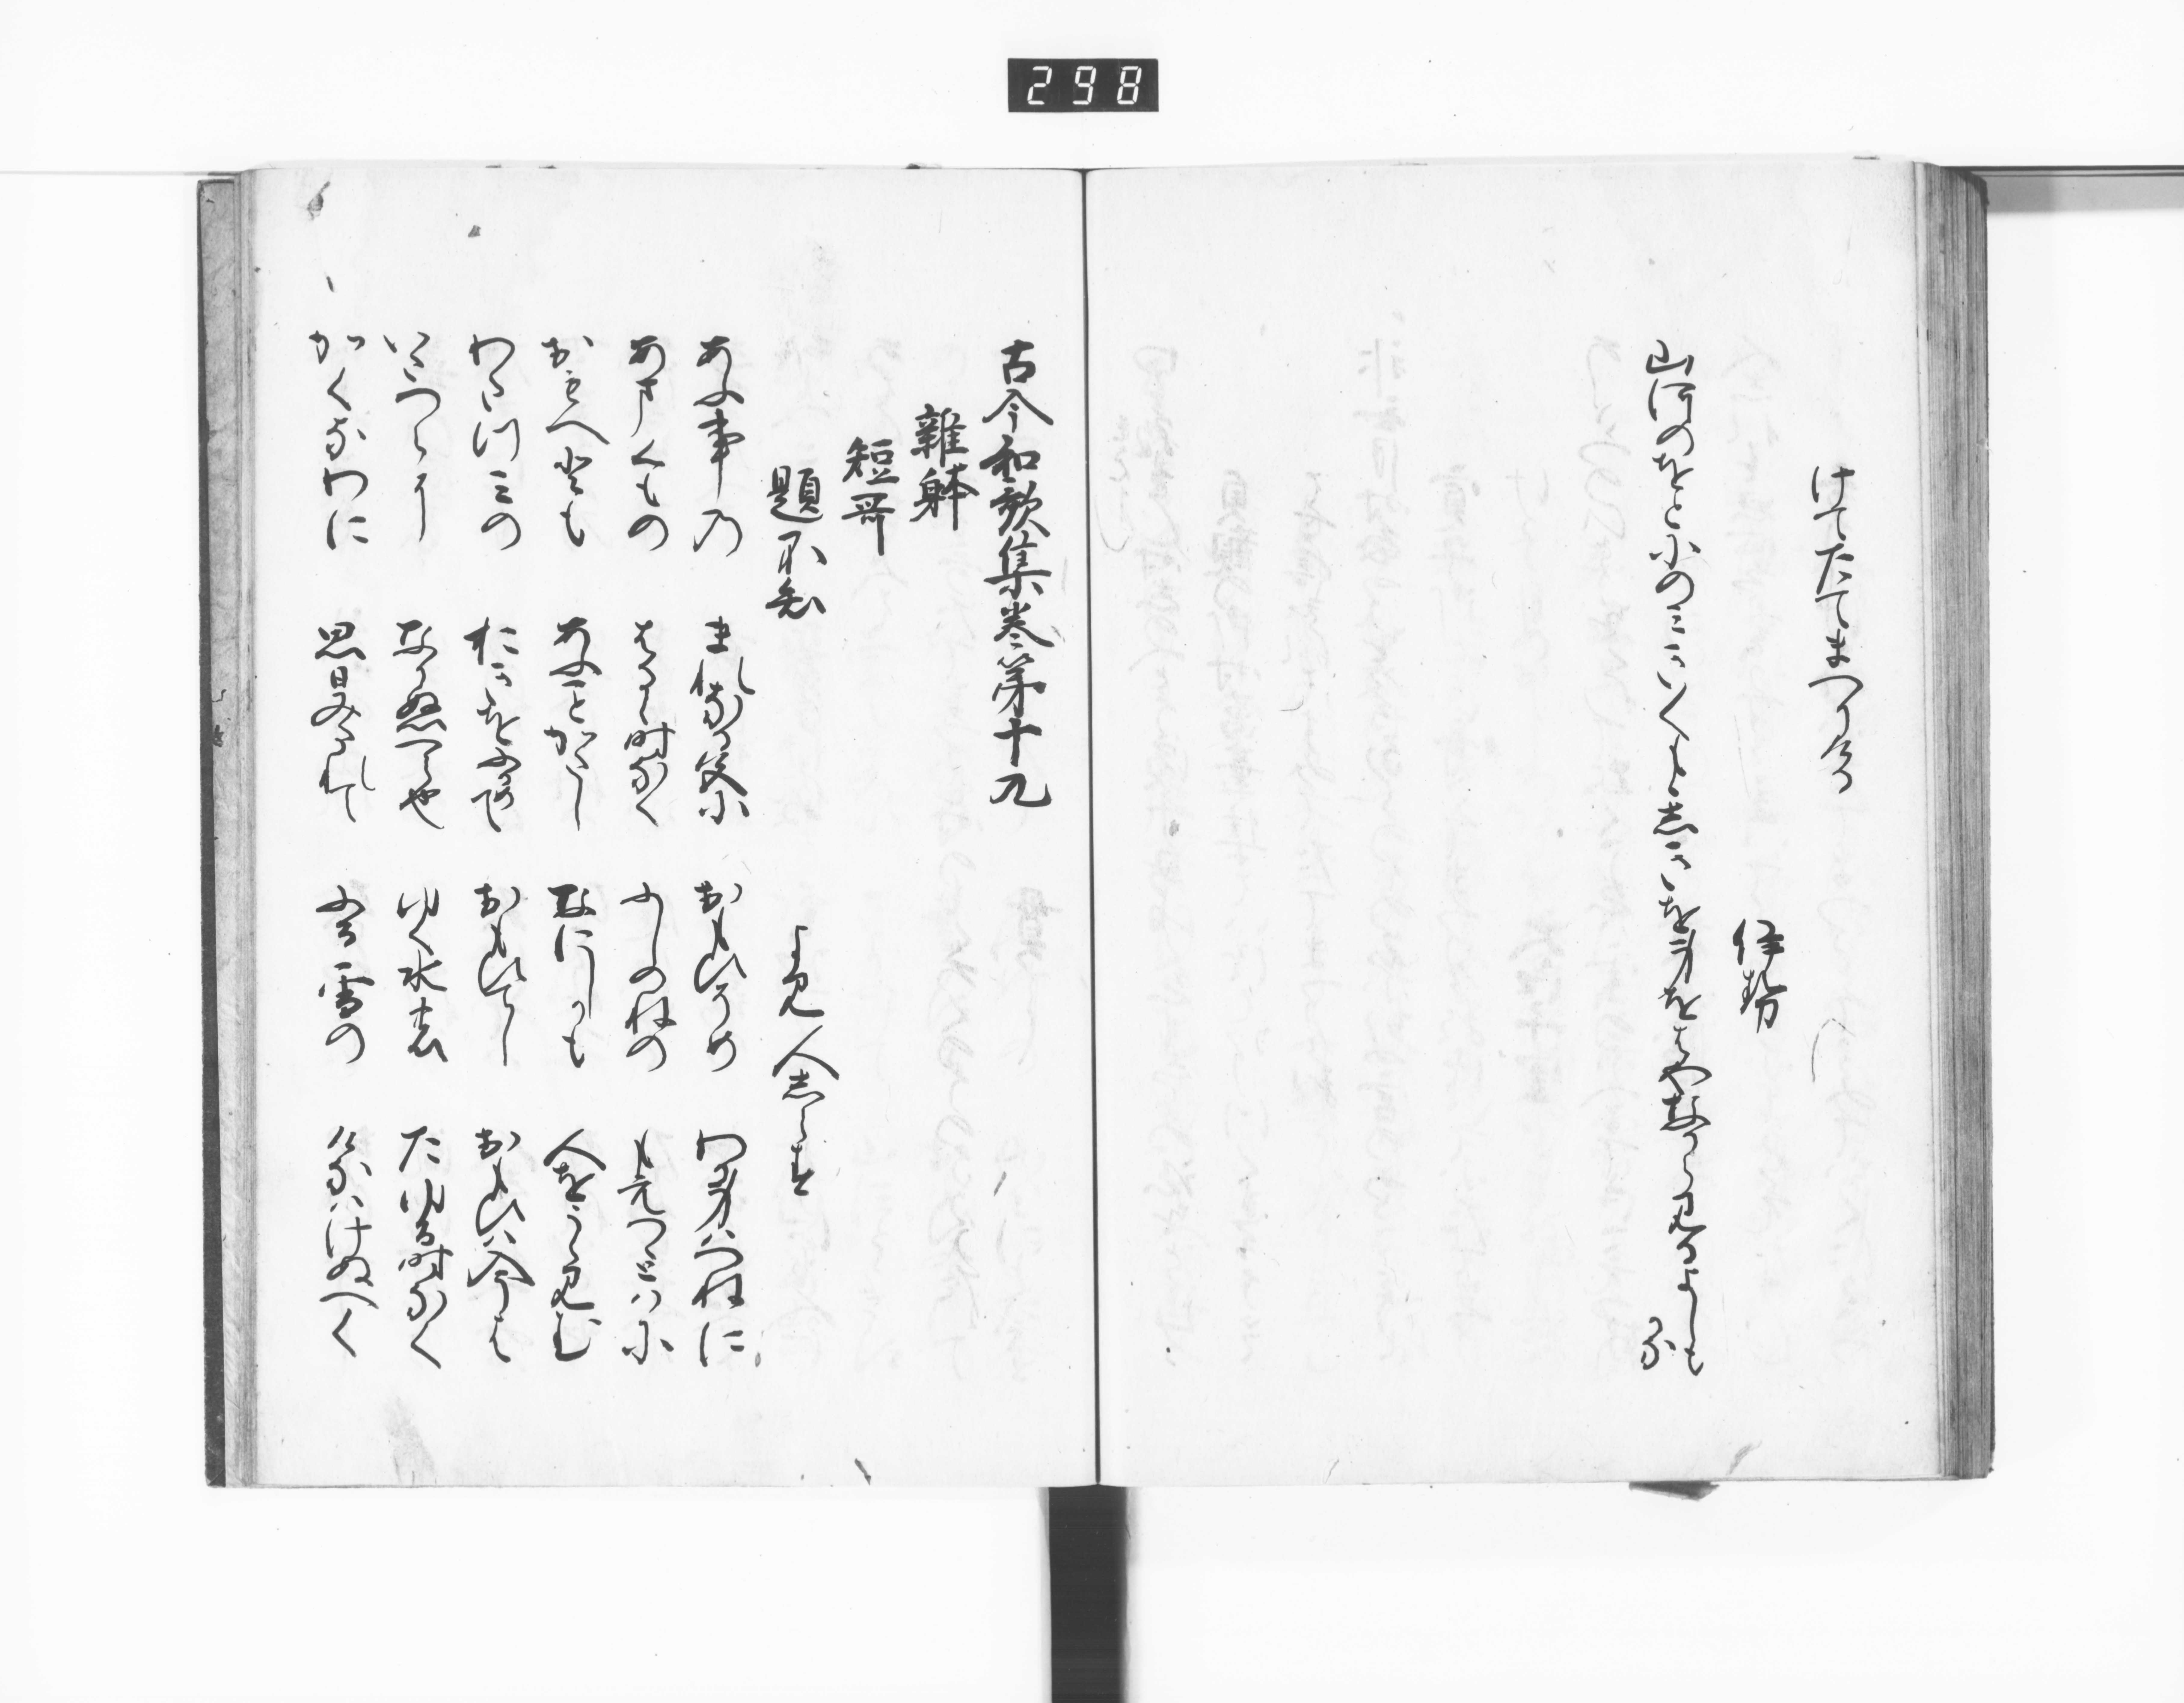 298
けてたてまつりける
伊勢
山河のをとにのみきくもゝしきを身をはやなからみるよしも
かな
古今和歌集巻第十九
雑躰
短哥
題不知
よみ人しらす
あふ事の　まれなる色に　おもひそめ　わか身はつねに
あまくもの　はるゝ時なく　ふしのねの　もえつゝとはに
おもへとも　あふことかたし　なにしかも　人をうらみむ
わたつみの　おきをふかめて　おもひてし　おもひは今は
いたつらに　なりぬへらなり　ゆく水の　たゆる時なく
かくなわに　思みたれて　ふる雪の　けなはけぬへく